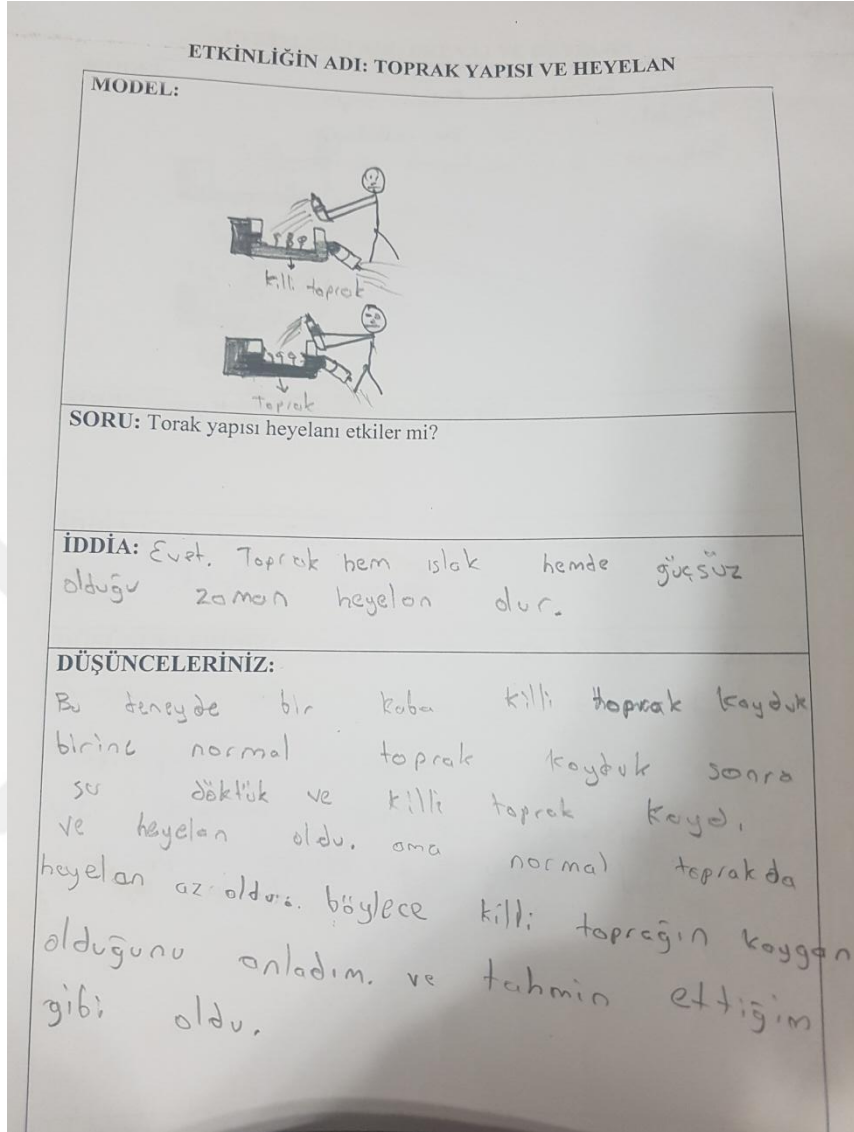 ETKİNLİĞİN ADI: TOPRAK YAPISI VE HEYELAN
MODEL:
killi toprak
Toprak
SORU: Torak yapısı heyelanı etkiler mi?
İDDİA: Evet. Toprak hem ıslak hemde güçsüz
olduğu zaman heyelan olur.
DÜŞÜNCELERİNİZ:
Bu deneyde bir kaba killi toprak koyduk
birine normal toprak koyduk sonra
su döktük ve killi toprak kaydı
ve heyelan oldu. ama normal toprakda
heyelan az oldu. böylece killi toprağın kaygan
olduğunu anladım. ve tahmin ettiğim
gibi oldu.